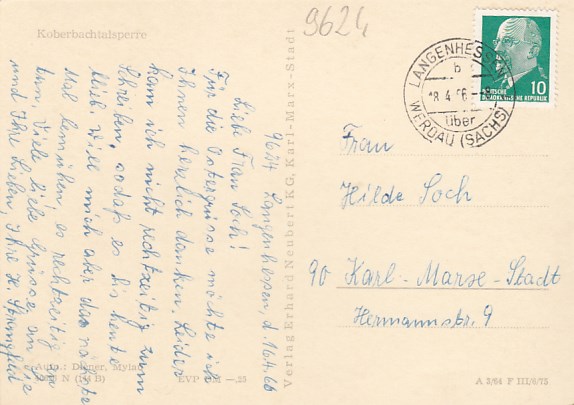 Koberbachtalsperre
9624
LANGENHESSEN
b
18.4.66
über
WERDAU (SACHS)
DEUTSCHE
DEMOKRATISCHE REPUBLIK
10
9624 Langenhessen, d. 16.4.66
Liebe Frau Soch!
Für die Ostergrüsse möchte ich
Ihnen herzlich danken. Leider
kam ich nicht rechtzeitig zum
Schreiben, sodaß es bis heute
blieb. Will mich aber das nächste
Mal bemühen, es rechtzeitig zu
tun. Viele liebe Grüsse an Sie
und Ihre Lieben, Ihre H.
Verlag Erhard Neubert KG, Karl-Marx-Stadt
Frau
Hilde Soch
90 Karl-Marse-Stadt
Hermannstr. 9
Aufn.: Mylau
N (1 B)
EVP DM —,25
A 3/64 F III/6/75